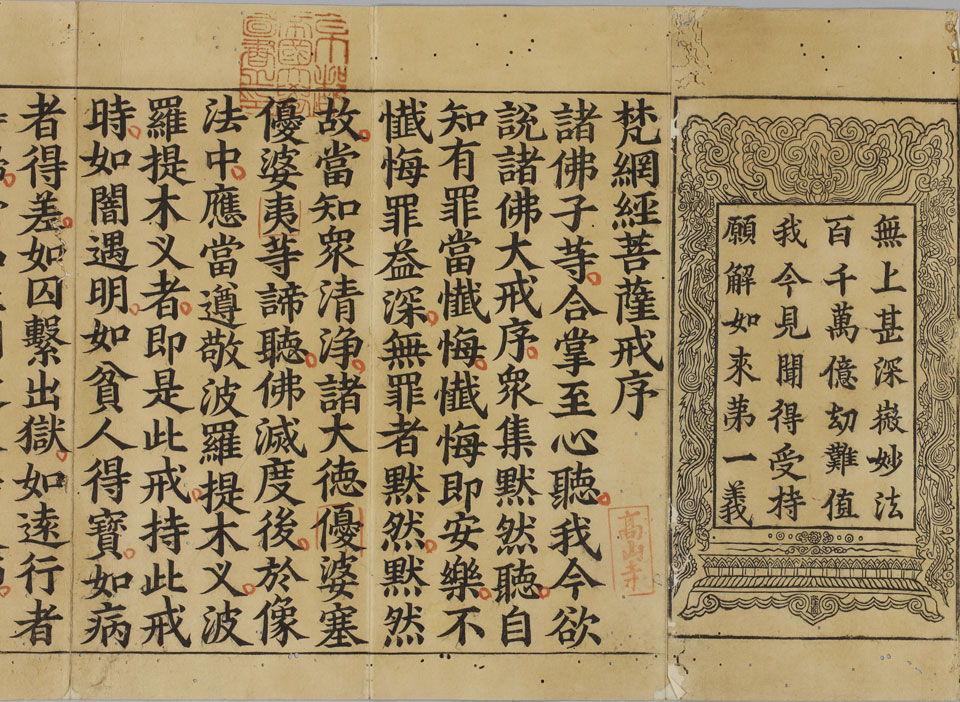 無上甚深微妙法
百千萬億劫難值
我今見聞得受持
願解如來苐一義
梵網經菩薩戒序
諸佛子等合掌至心聽我今欲
說諸佛大戒序衆集默然聽自
知有罪當懺悔懺悔即安樂不
懺悔罪益深無罪者默然默然
故當知衆清淨諸大德優婆塞
優婆夷等諦聽佛滅度後於像
法中應當遵敬波羅提木叉波
羅提木叉者即是此戒持此戒
時如闇遇明如貧人得寶如病
者得差如囚繫出獄如遠行者
高山寺